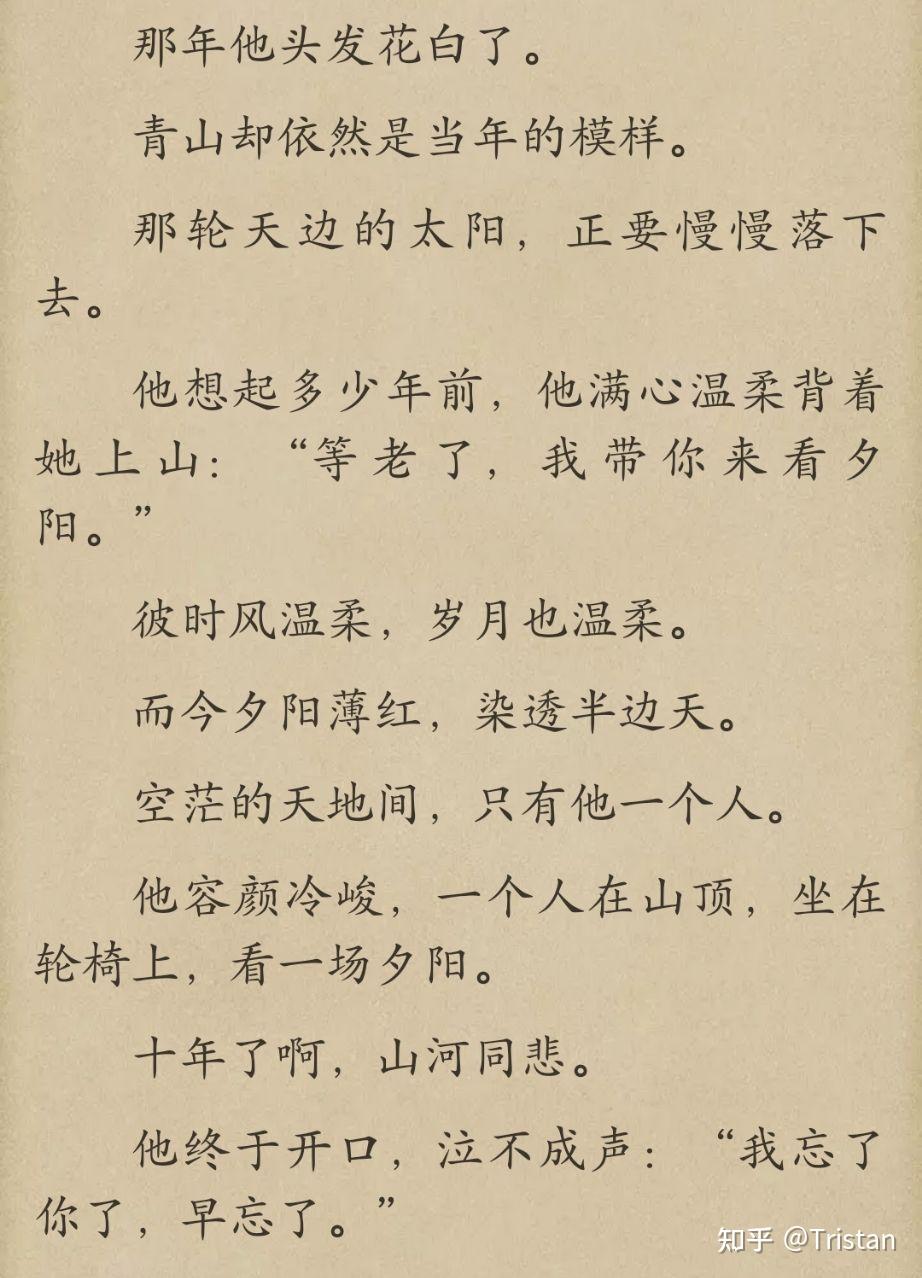 那年他头发花白了。
青山却依然是当年的模样。
那轮天边的太阳，正要慢慢落下
去。
他想起多少年前，他满心温柔背着
她上山：“等老了，我带你来看夕
阳。”
彼时风温柔，岁月也温柔。
而今夕阳薄红，染透半边天。
空茫的天地间，只有他一个人。
他容颜冷峻，一个人在山顶，坐在
轮椅上，看一场夕阳。
十年了啊，山河同悲。
他终于开口，泣不成声：“我忘了
你了，早忘了。”
知乎 @Tristan